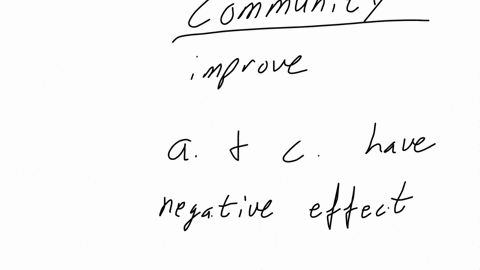 Community
improve
a. + c. have
negative effect